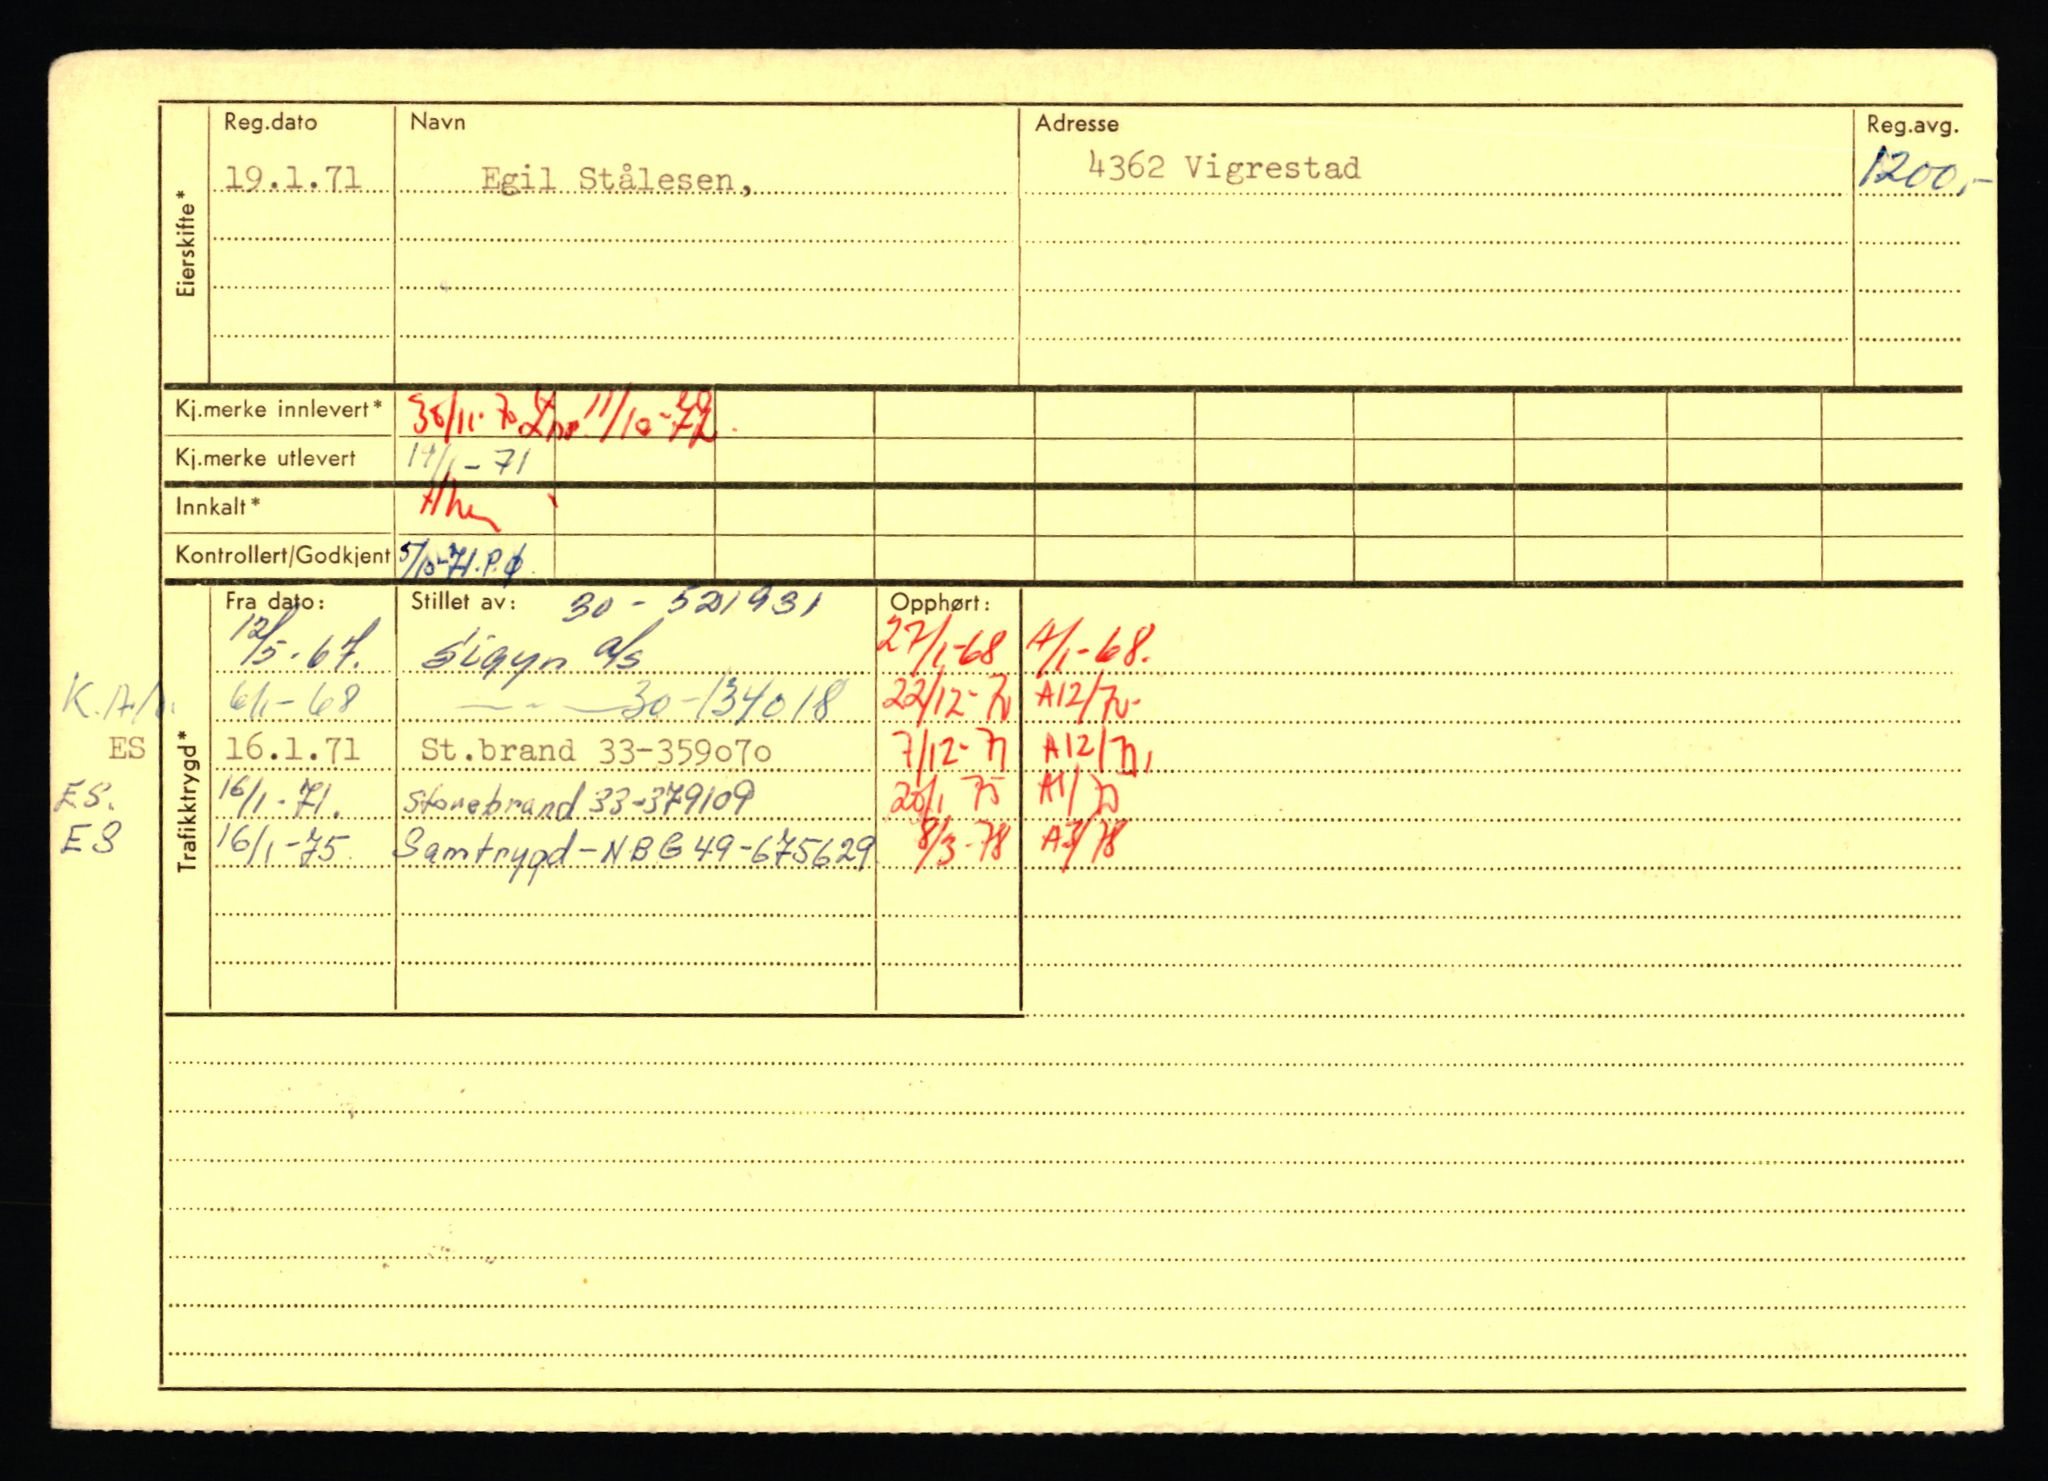 Reg.dato Navn Adresse Reg.avg.
19.1.71 Egil Stålesen, 4362 Vigrestad 1200,-
Eierskifte*
Kj.merke innlevert* 30/11-70 11/10-72.
Kj.merke utlevert 19/1-71
Innkalt*
Kontrollert/Godkjent 5/10-71. P.Ø.
Trafikktrygd*
Fra dato: Stillet av: 30-521931 Opphørt:
12/5-67. Sigyn a/s 27/1-68 A/1-68.
6/1-68 — " — 30-134018 22/12-70 A12/70-
ES 16.1.71 St.brand 33-359o7o 7/12-71 A12/71,
ES. 16/1-71. Storebrand 33-379109 20/1 75 A1/75
ES 16/1-75 Samtrygd-NBG 49-675629 8/3-78 A3/78